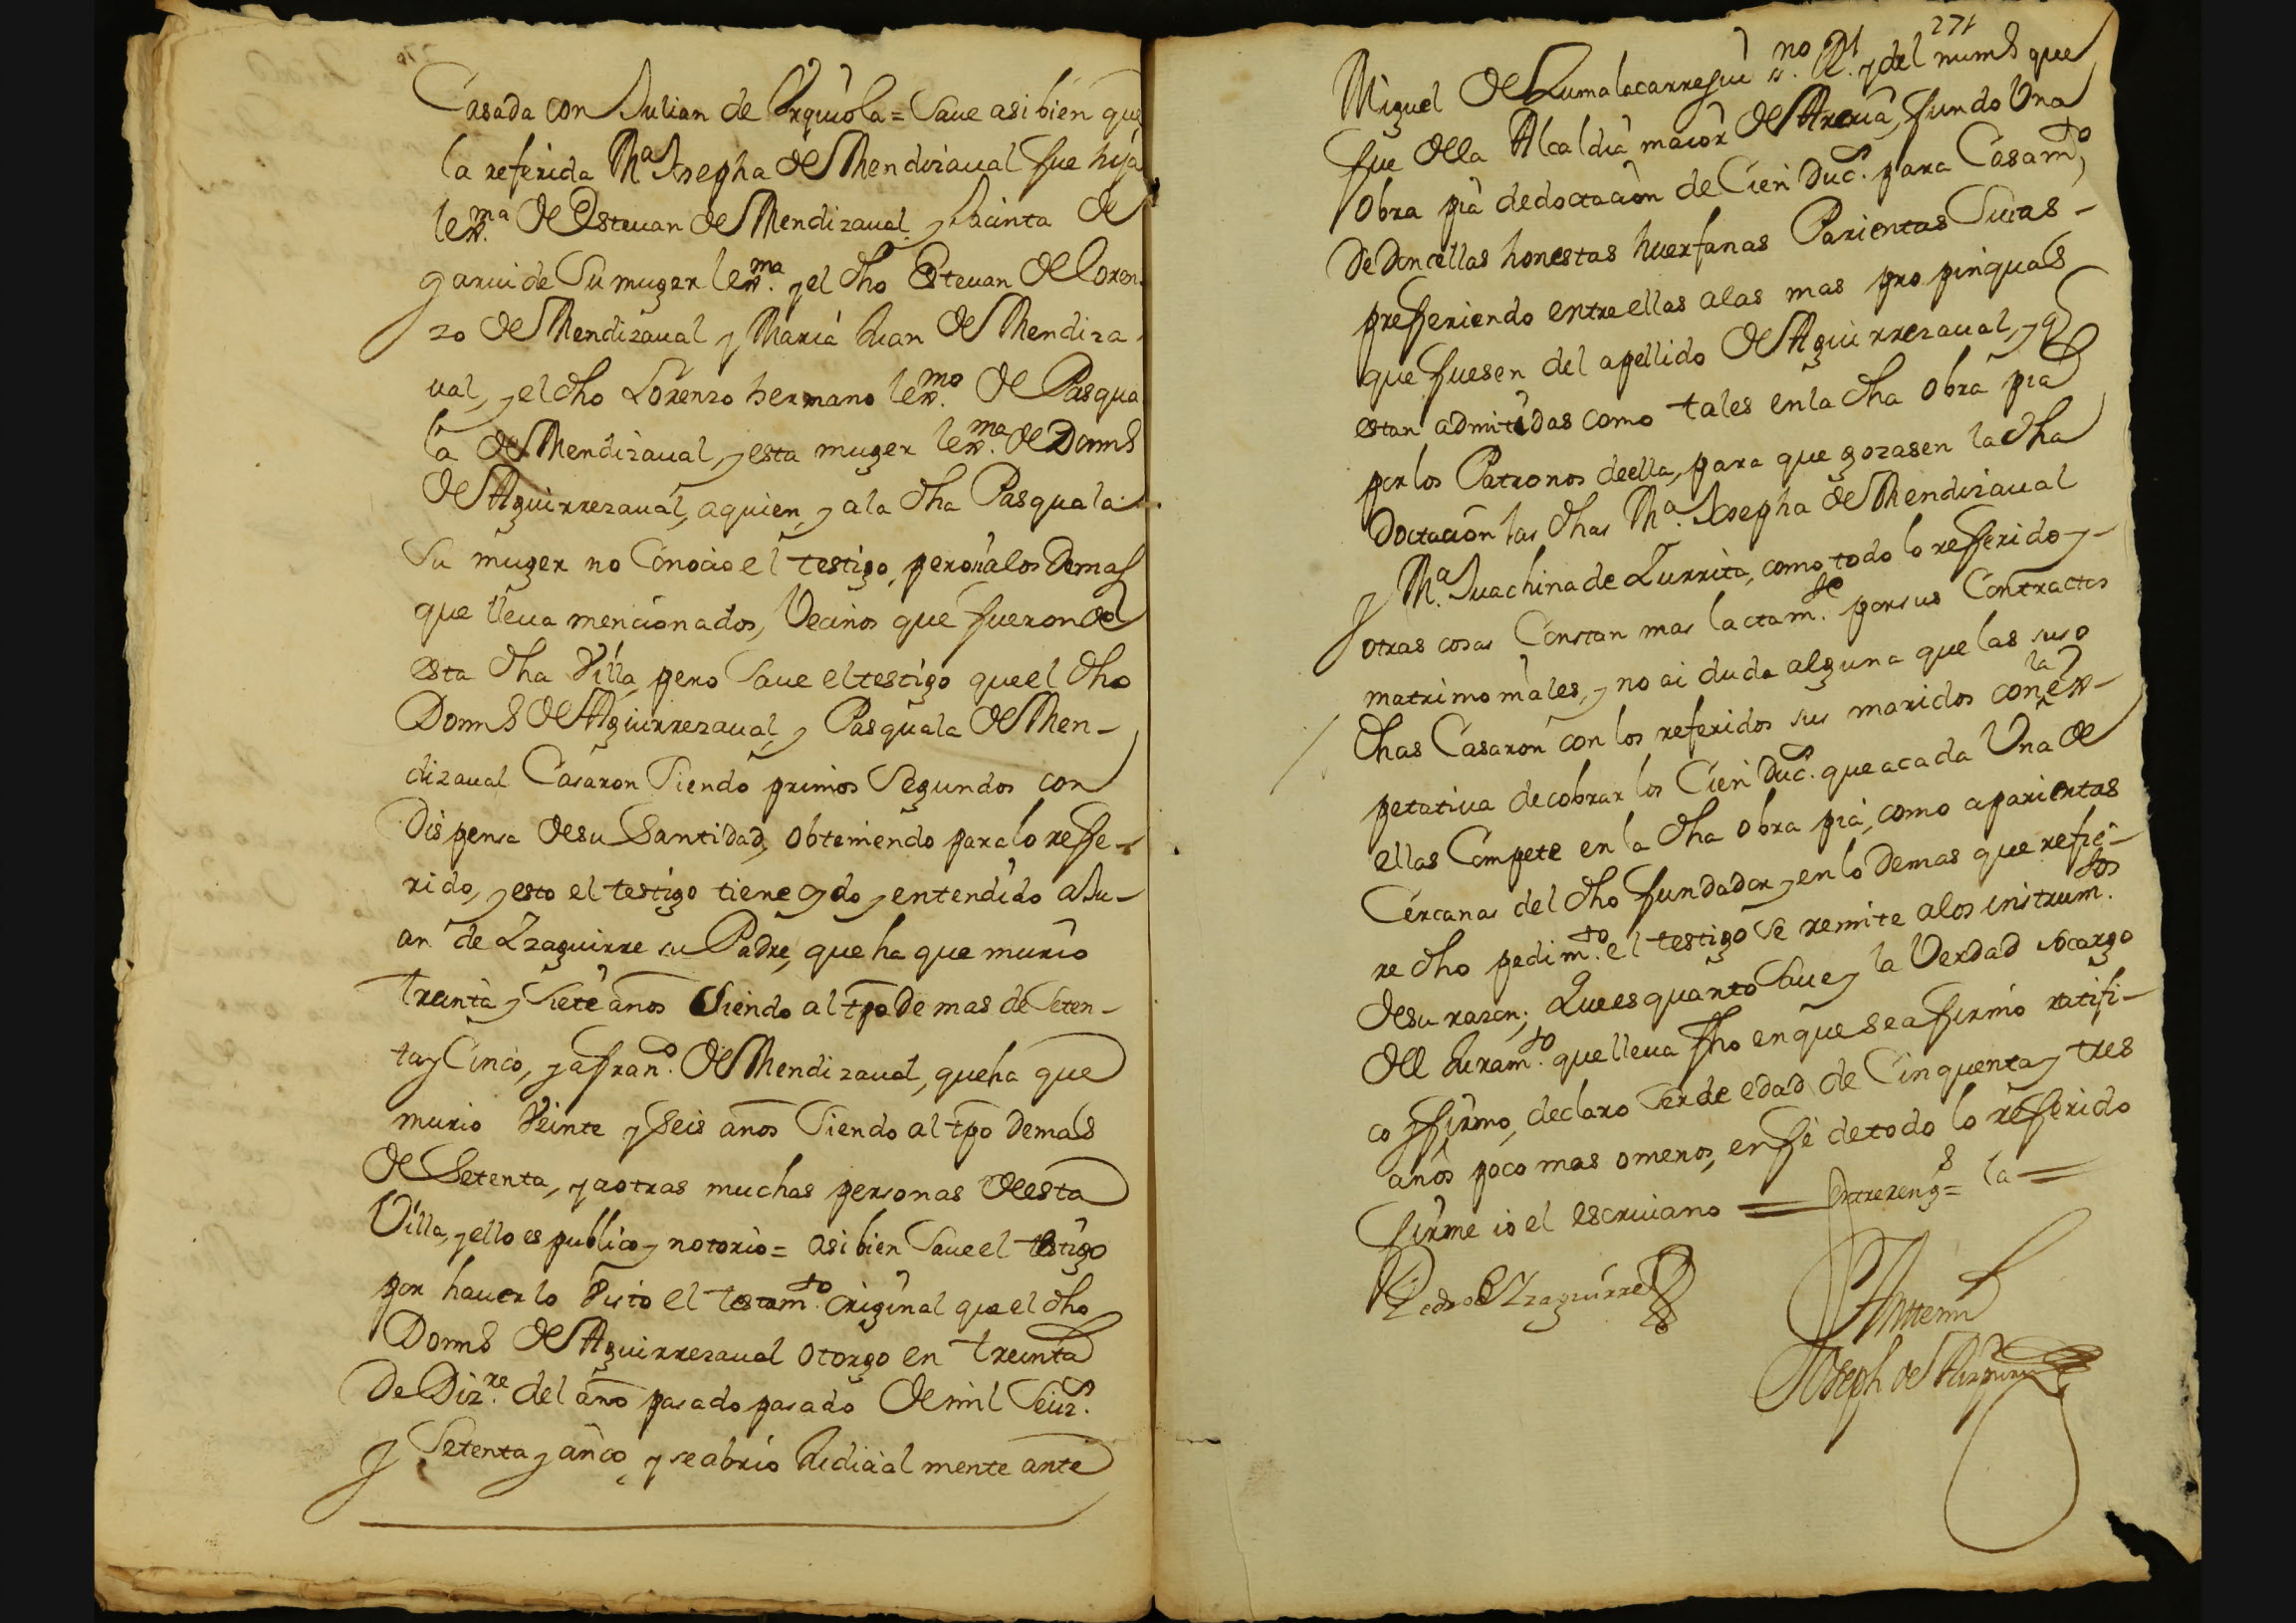 Casada con Julian de Vrquiola = Saue asi bien que
la referida Mª Josepha de Mendizaual fue hija
lexma de Esteuan de Mendizaual y Jacinta de
garuide Su muger lexma. y el dho Esteuan de Loren
zo de Mendizaual y Maria Juan de Mendiza
ual, y el dho Lorenzo hermano lexmo. de Pasqua
la de Mendizaual, y esta muger lexma. de Domᵒ
de Aguirrezaual, aquien, y ala dha Pasquala
Su muger no Conocio el testigo, pero a los Demas
que lleua mencionados, Vecinos que fueron de
esta dha Villa, pero Saue el testigo que el dho
Domᵒ de Aguirrezaual, y Pasquala de Men-
dizaual Casaron Siendo primos Segundos con
Dispensa de su Santidad, obteniendo para lo reffe-
rido, y esto el testigo tiene oydo y entendido a Ju-
an de Yzaguirre su Padre, que ha que murio
treinta y Siete años Siendo al tpo de mas de Seten-
ta y Cinco, y a franᶜᵒ. de Mendizaual, que ha que
murio Veinte y Seis años Siendo al tpo demas
de Setenta, y a otras muchas personas de esta
Villa, y ello es publico y notorio = asi bien Saue el testigo
por hauerlo Visto el testamᵗᵒ. original que el dho
Domᵒ de Aguirrezaual otorgo en treinta
De Dizʳᵉ. del año pasado pasado de mil Seisˢ.
y Setenta y cinco, y se abrio Judicial mente ante
271
Miguel de Zumalacarregui ssⁿᵒ. Rˡ. y del numᵒ que
fue de la Alcaldia maior de Areria, fundo Una
Obra pia de doctacion de Cien Ducˢ. para Casamᵗᵒ,
De Doncellas honestas huerfanas Parientas Suias -
prefferiendo entre ellas alas mas propinquas
que fuesen del apellido de Aguirrezaual, y q
estan admitidas como tales en la dha obra pia
por los Patronos de ella, para que gozasen la dha
Doctacion las dhas Mª. Josepha de Mendizaual
y Mª. Juachina de Zurrita, como todo lo refferido y -
otras cosas Constan mas lactamᵗᵉ. por sus Contractos
matrimoniales, y no ai duda alguna que las suso
dhas Casaron con los referidos sus maridos con la ex-
petatiua de cobrar los Cien Ducˢ. que a cada Una de
ellas Compete en la dha obra pia, como a parientas
Cercanas del dho fundador, y en lo Demas que refie-
re dho pedimᵗᵒ. el testigo Se remite a los instrumᵗᵒˢ.
de su razon; Que es quanto Saue y la Verdad socargo
del Juramᵗᵒ. que lleua fho en que Se afirmo ratifi-
co y firmo, declaro Ser de edad de Cinquenta y tres
años poco mas o menos, en fe de todo lo refferido
firme io el escriuano = Entrerengˢ = la =
Pedro de Yzaguirre
Anttemi
Joseph de